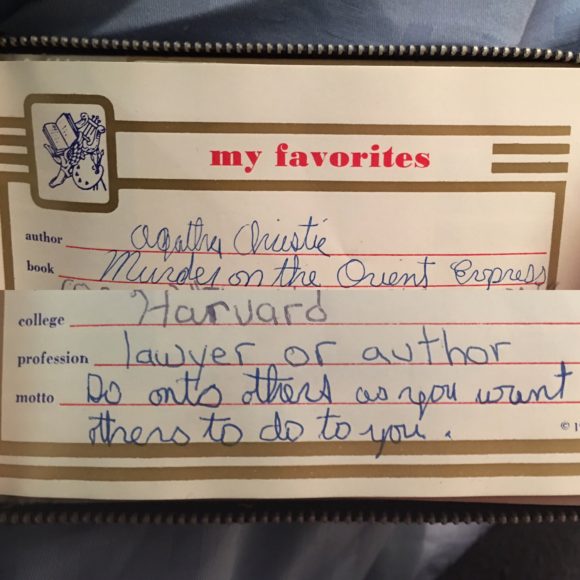 my favorites
author Agatha Christie
book Murder on the Orient Express
college Harvard
profession lawyer or author
motto Do onto others as you want
others to do to you.
© 1